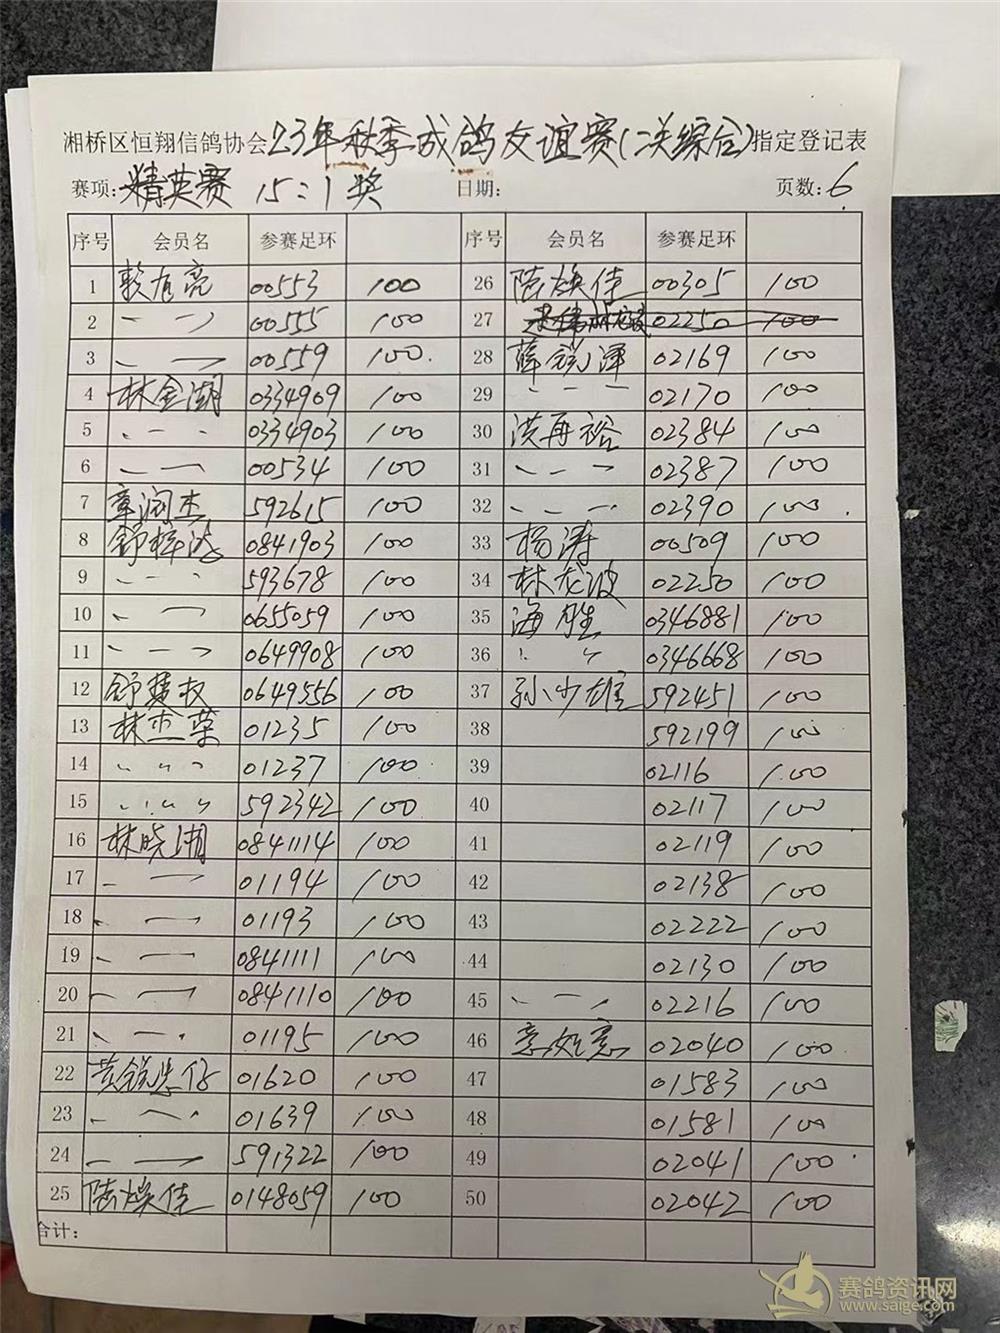 湘桥区恒翔信鸽协会23年秋季成鸽友谊赛(二关综合)指定登记表
赛项:精英赛 15:1奖 日期: 页数:6
序号 会员名 参赛足环 序号 会员名 参赛足环
1 00553 100 26 陆焕佳 00305 100
2 〃 00555 100 27 02250 100
3 〃 00559 100 28 薛锐泽 02169 100
4 林金湖 0334909 100 29 〃 02170 100
5 〃 0334903 100 30 洪再裕 02384 100
6 〃 00534 100 31 〃 02387 100
7 章润杰 592615 100 32 〃 02390 100
8 0841903 100 33 杨涛 00509 100
9 〃 593678 100 34 林龙波 02250 100
10 〃 0655059 100 35 海胜 0346881 100
11 〃 0649908 100 36 〃 0346668 100
12 0649556 100 37 孙少雄 592451 100
13 林杰荣 01235 100 38 592199 100
14 〃 01237 100 39 02116 100
15 〃 592342 100 40 02117 100
16 林晓湘 0841114 100 41 02119 100
17 〃 01194 100 42 02138 100
18 〃 01193 100 43 02222 100
19 〃 0841111 100 44 02130 100
20 〃 0841110 100 45 〃 02216 100
21 〃 01195 100 46 02040 100
22 01620 100 47 01583 100
23 〃 01639 100 48 01581 100
24 〃 591322 100 49 02041 100
25 陆焕佳 0148059 100 50 02042 100
合计:
赛鸽资讯网
www.saige.com